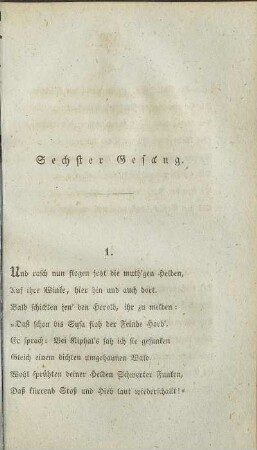 Sechster Gesang.
1.
Und rasch nun flogen jetzt die muth'gen Helden,
Auf ihre Winke, hier hin und auch dort.
Bald schickten jen' den Herold, ihr zu melden:
„Daß schon bis Susa floh der Feinde Hord'.
Er sprach: Bei Riphat's sah ich sie gesunken
Gleich einem dichten umgehaunen Wald.
Wohl sprühten deiner Helden Schwerter Funken,
Daß klirrend Stoß und Hieb laut wiederschallt!"